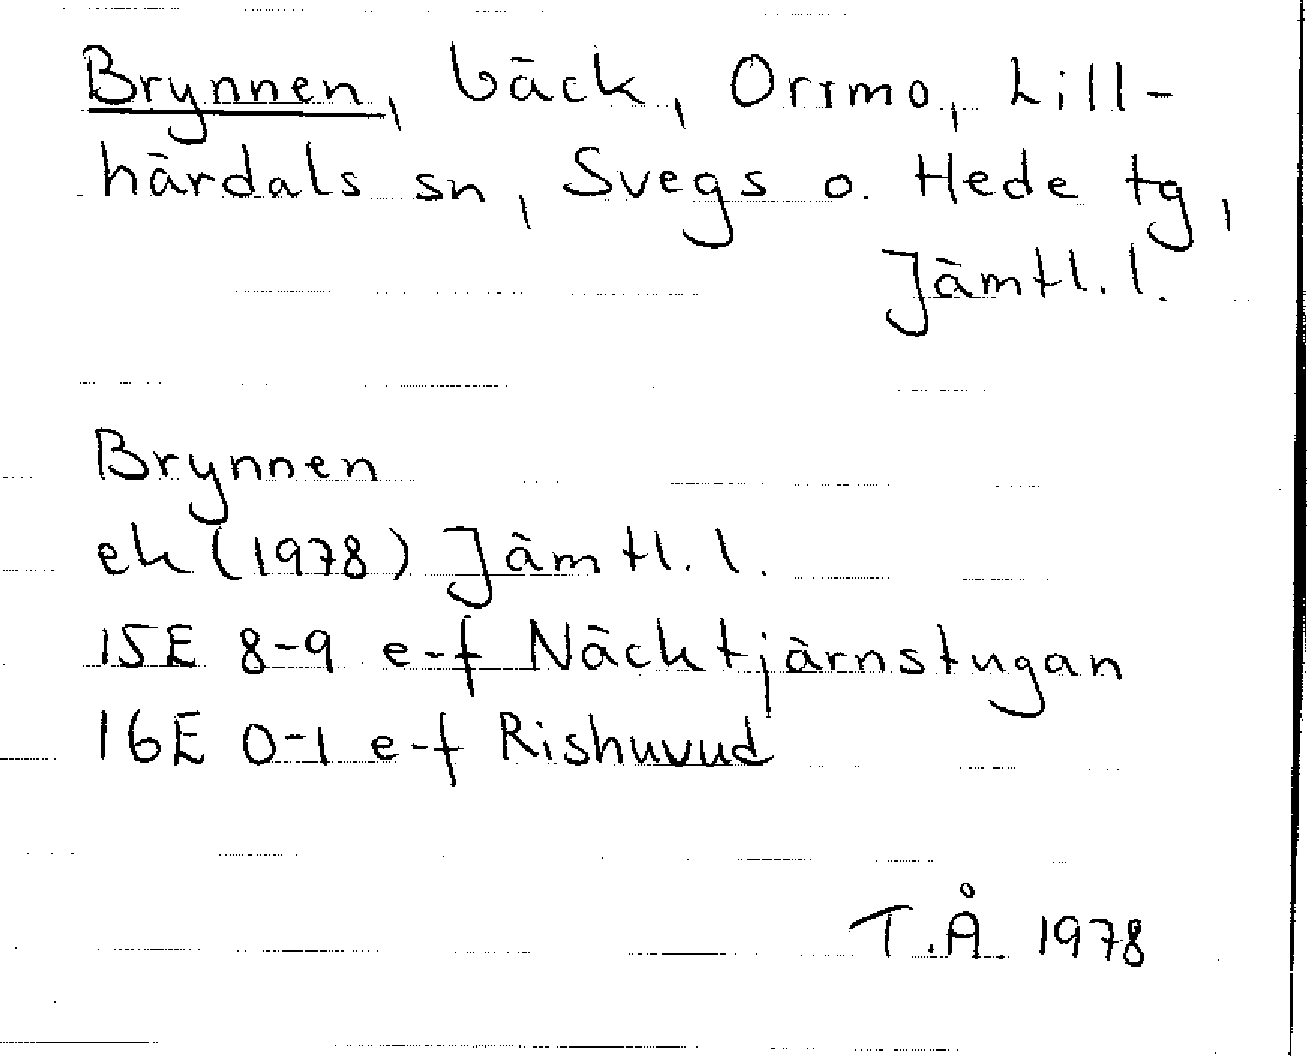 Brynnen, bäck, Orrmo, Lill-
härdals sn, Svegs o. Hede tg,
Jämtl. l.
Brynnen
ek (1978) Jämtl. l.
15E 8-9 e-f Näcktjärnstugan
16E 0-1 e-f Rishuvud
T.Å. 1978